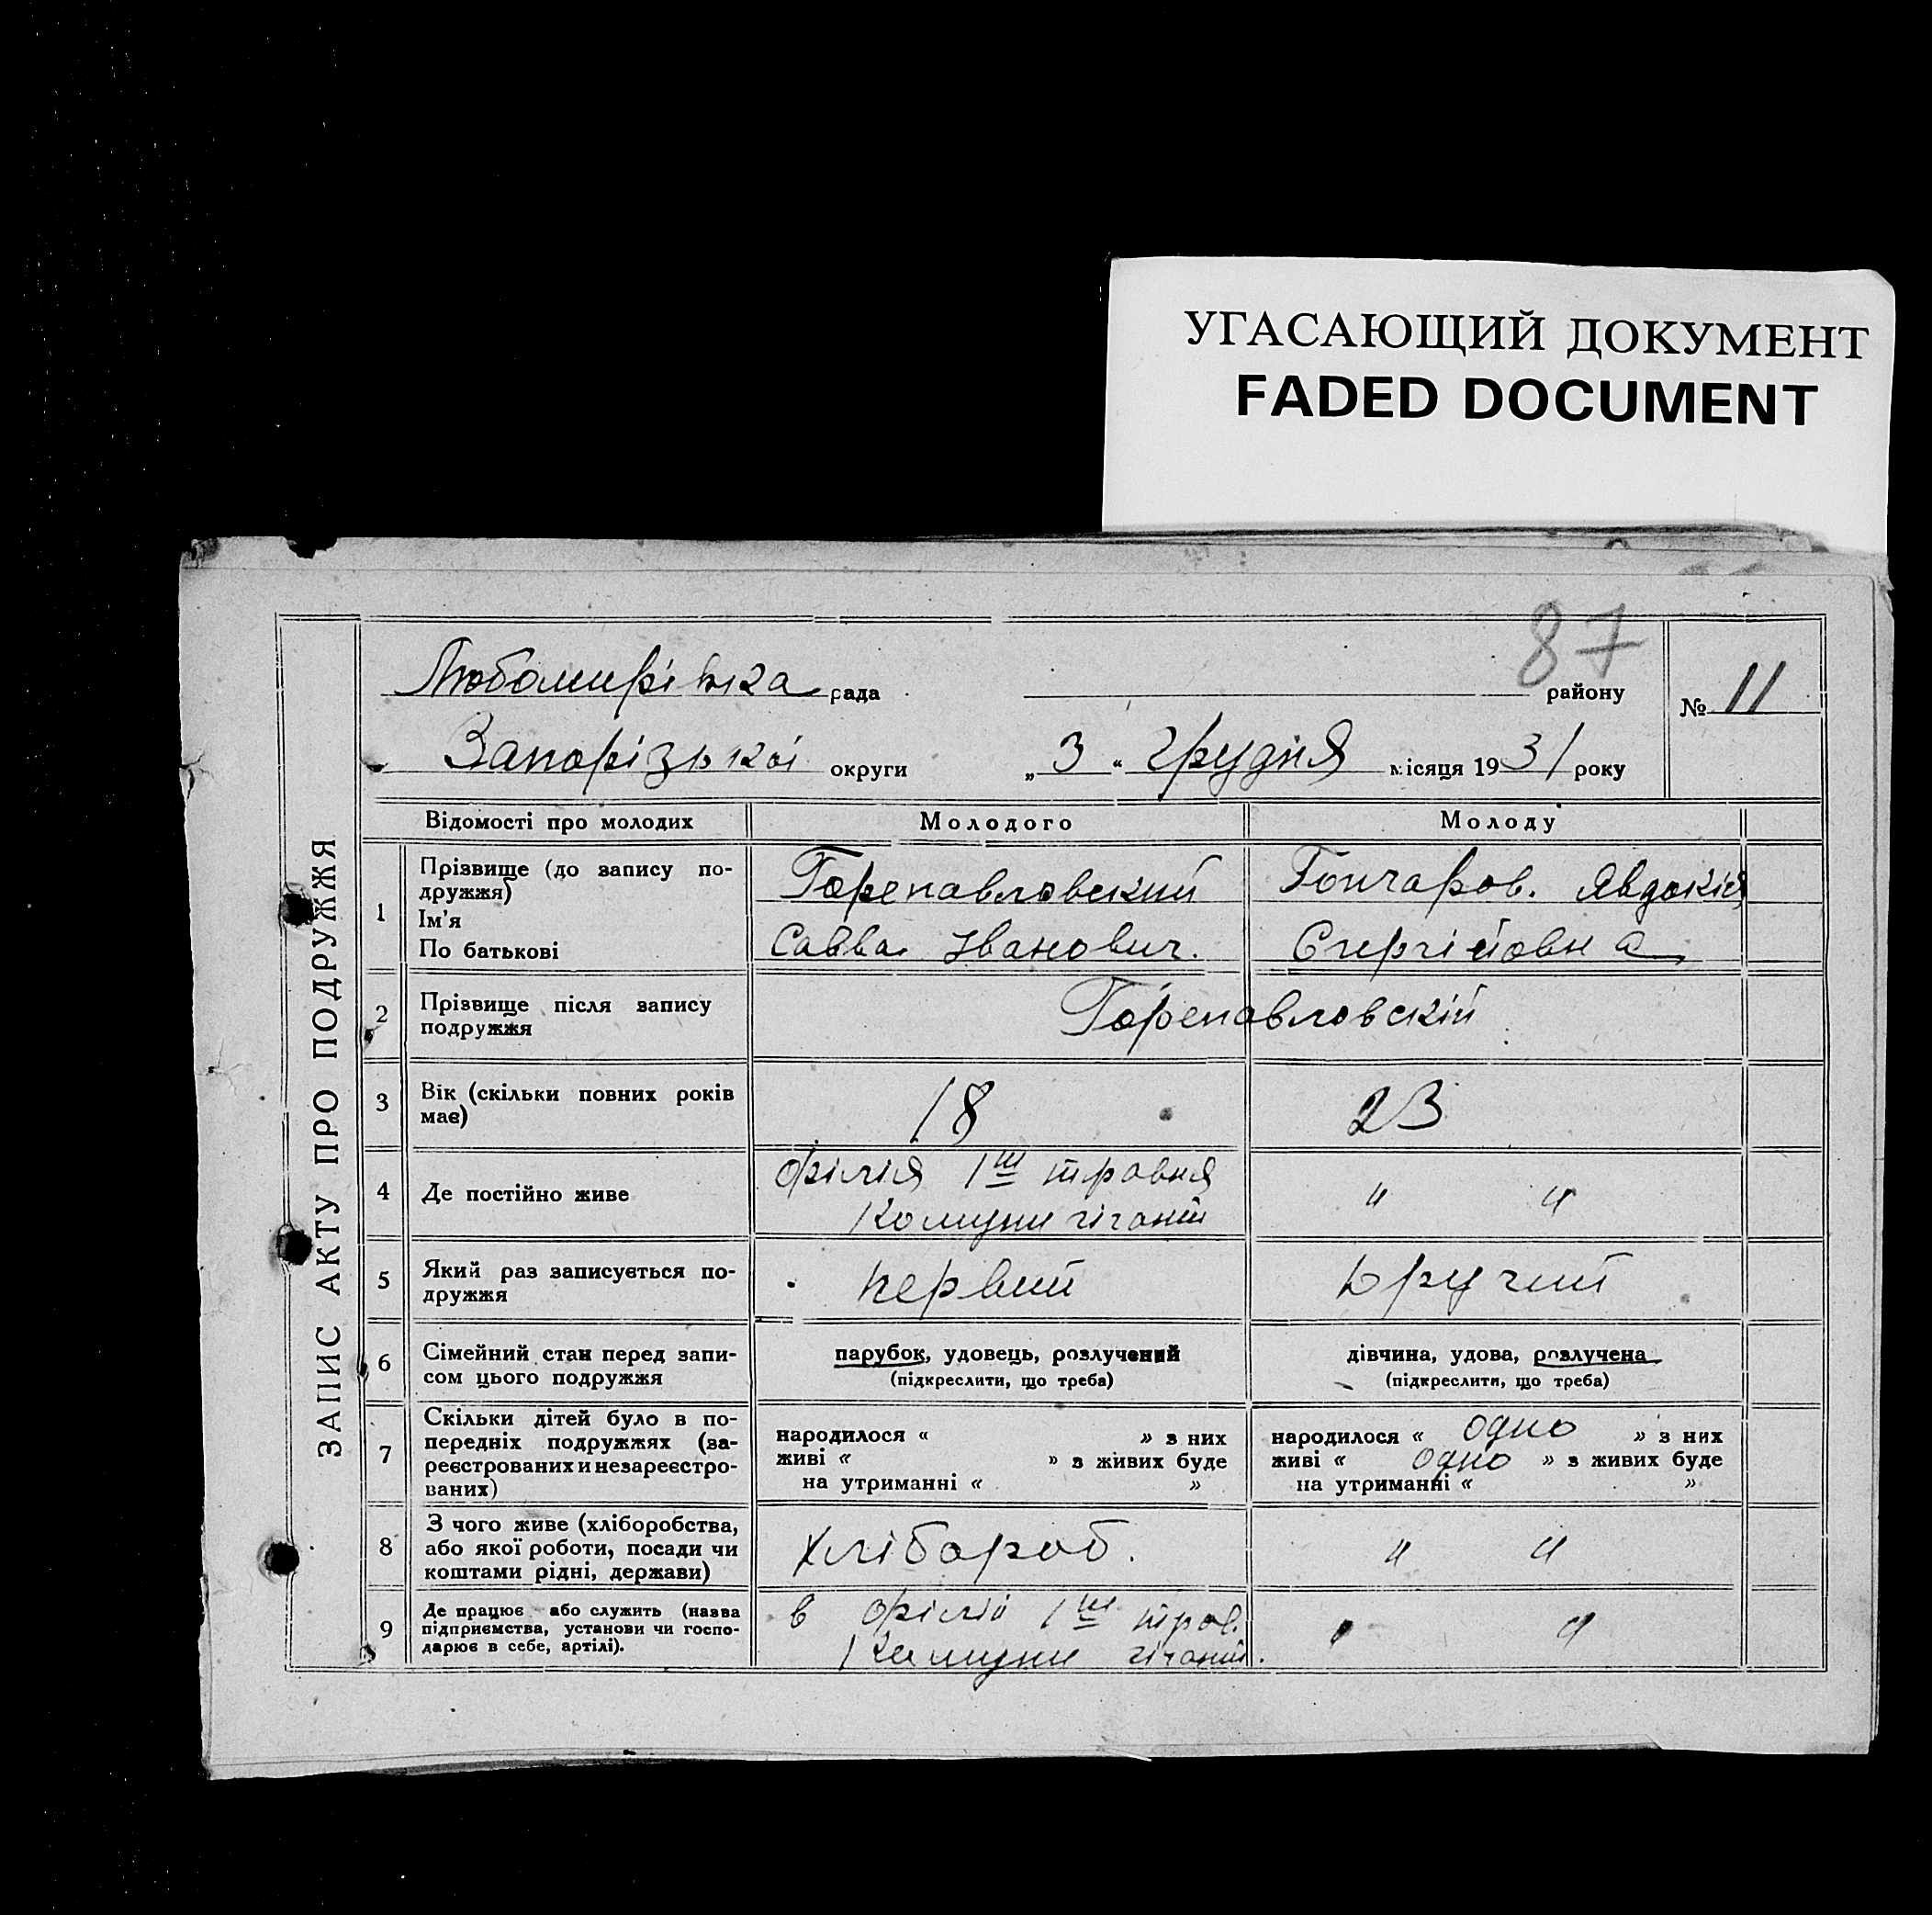 УГАСАЮЩИЙ ДОКУМЕНТ
FADED DOCUMENT
87
Любомирівка рада району
№ 11
Запорізької округи „ 3 “ грудня місяця 1931 року
ЗАПИС АКТУ ПРО ПОДРУЖЖЯ
Відомості про молодих Молодого Молоду
1 Прізвище (до запису по-
дружжя)
Ім'я
По батькові
Горепавловский
Савва Іванович.
Гончаров. Явдокія
Сергієовна
2 Прізвище після запису
подружжя
Горепавловскій
3 Вік (скільки повних років
має)
18 23
4 Де постійно живе
філія 1ш травня
Комуни гігант
" "
5 Який раз записується по-
дружжя
первий другий
6 Сімейний стан перед запи-
сом цього подружжя
парубок, удовець, розлучений
(підкреслити, що треба)
дівчина, удова, розлучена
(підкреслити, що треба)
7 Скільки дітей було в по-
передніх подружжях (за-
реєстрованих и незареєстро-
ваних)
народилося « » з них
живі « » з живих буде
на утриманні « »
народилося « одно » з них
живі « одно » з живих буде
на утриманні « »
8 З чого живе (хліборобства,
або якої роботи, посади чи
коштами рідні, держави)
хлібороб.
" "
9 Де працює або служить (назва
підприємства, установи чи госпо-
дарює в себе, артілі).
в філії 1ш трав.
Комуни гігант.
" "